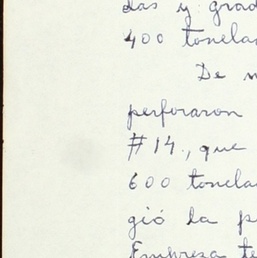 das y grad
400 tonela
De m
perforaron
#14., que
600 tonela
gió la p
Empresa te